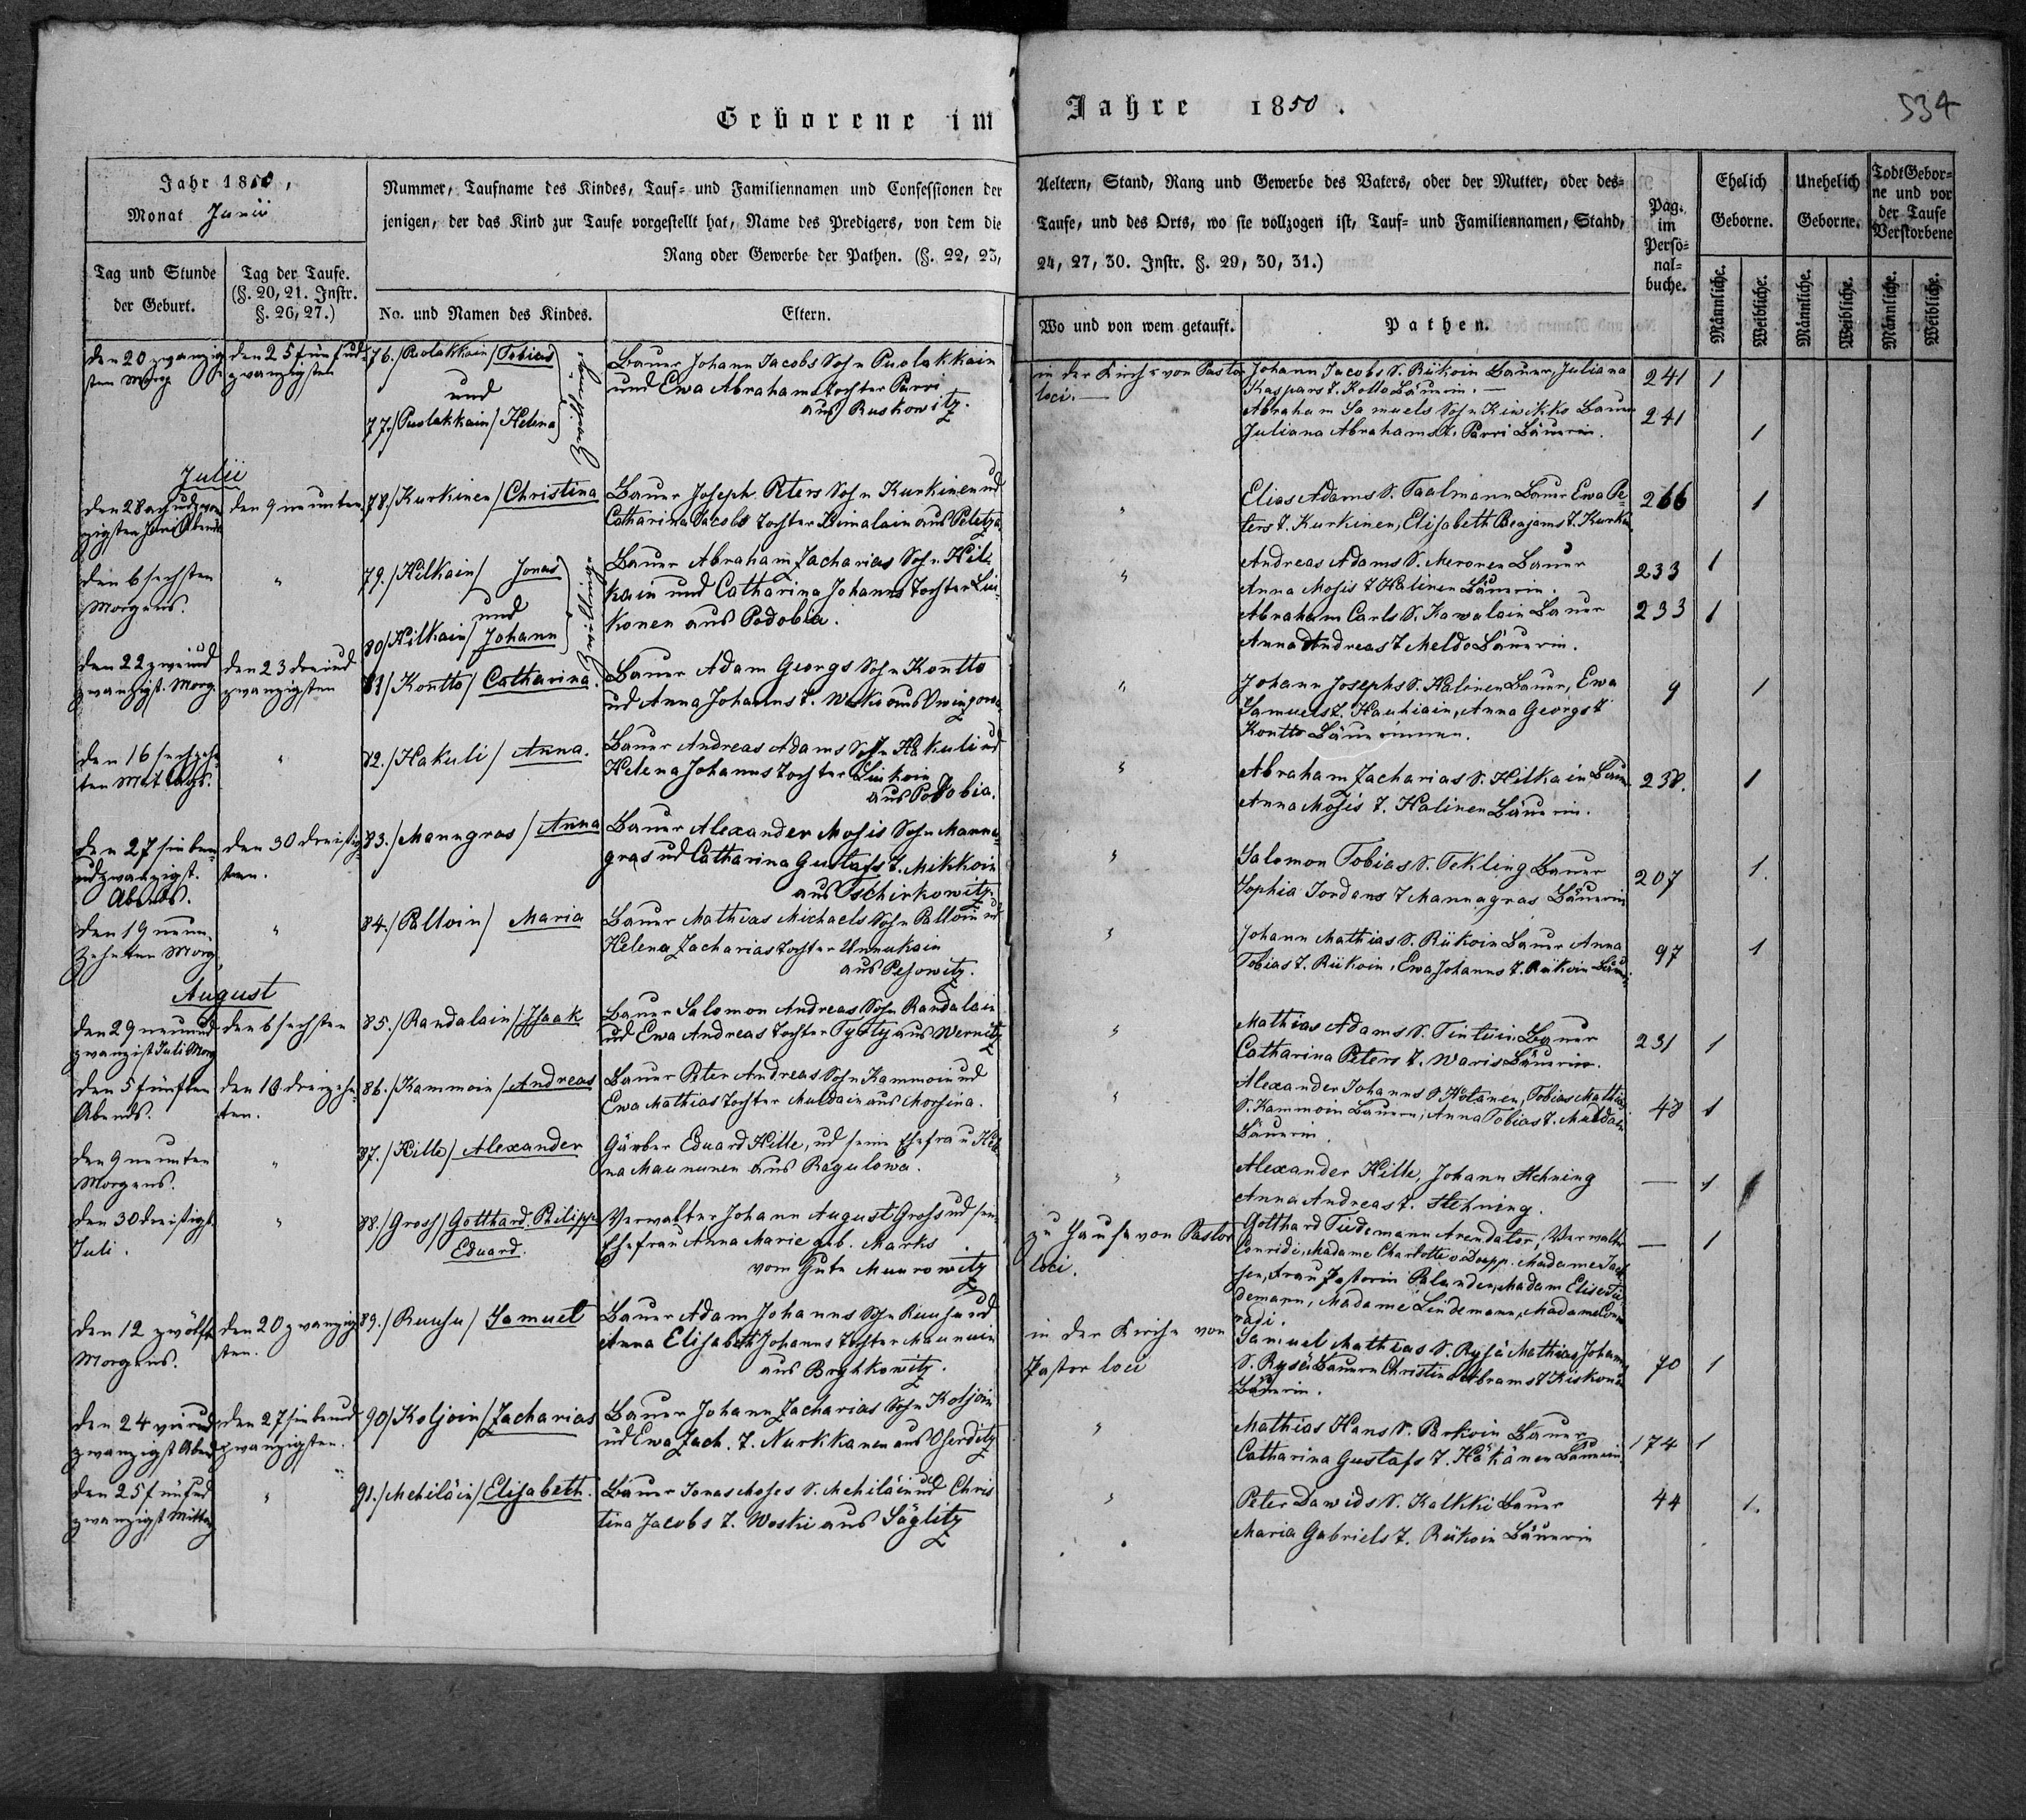 Geborene im Jahre 1850.
534
Jahr 1850,
Monat Junii
Tag und Stunde
der Geburt.
Tag der Taufe.
(§. 20, 21. Instr.
§. 26, 27.)
Nummer, Taufname des Kindes, Tauf- und Familiennamen und Confessionen der
jenigen, der das Kind zur Taufe vorgestellt hat, Name des Predigers, von dem die
Rang oder Gewerbe der Pathen. (§. 22, 23,
No. und Namen des Kindes.
Eltern.
Aeltern, Stand, Rang und Gewerbe des Vaters, oder der Mutter, oder des-
Taufe, und des Orts, wo sie vollzogen ist, Tauf- und Familiennamen, Stand,
24, 27, 30. Instr. §. 29, 30, 31.)
Wo und von wem getauft.
Pathen.
Pag.
im
Perso-
nal-
buche.
Ehelich
Geborne.
Unehelich
Geborne.
Todt Gebor-
ne und vor
der Taufe
Verstorbene
Männliche.
Weibliche.
Männliche.
Weibliche.
Männliche.
Weibliche.
den 20 zwanzig
sten Morg.
den 25 fünfud
zwanzigsten
76./Puolakkain/Tobias
und
77./Puolakkain/Helena
Zwillinge
Bauer Johann Jacobs Sohn Puolakkain
und Ewa Abrahams Tochter Parri
aus Ruskowitz.
in der Kirche von Pastor
loci.
Johann Jacobs S. Rükoin Bauer, Juliana
Kaspars T. Kollo Bäuerin.
Abraham Samuels Sohn Kiwikko Bauer
Juliana Abrahams T. Parri Bäuerin.
241 1
241 1
Julii
den 28 achtudzwan
zigsten Juni Abends
den 9 neunten
78./Kurkinen/Christina
Bauer Joseph Peters Sohn Kurkinen ud
Catharina Jacobs Tochter Kimalain aus Pelitza
"
Elias Adams S. Taalmann Bauer Ewa Pe-
ters T. Kurkinen, Elisabeth Benjams T. Kurki
266 1
den 6 sechsten
Morgens.
"
79./Hilkain/ Jonas
und
80/Hilkain/Johann
Zwillinge
Bauer Abraham Zacharias Sohn Hil-
kain und Catharina Johanns Tochter Liu-
konen aus Podobia.
"
Andreas Adams S. Meronen Bauer
Anna Mosis T Halinen Bäuerin.
Abraham Carls S. Kawalain Bauer
Anna Andreas T Meldo Bäuerin.
233 1
233 1
den 22 zweiud
zwanzigst. Morg.
den 23 dreiud
zwanzigsten
81/Kontto/Catharina.
Bauer Adam Georgs Sohn Kontto
ud Anna Johanns T. Weski aus
"
Johann Josephs S. Halinen Bauer, Ewa
Samuels T. Hauhiain, Anna Georgs T
Kontto Bäuerinnen.
9 1
den 16 sechzehn
ten Mittags.
"
82./Hakuli/Anna.
Bauer Andreas Adams Sohn Hakuli ud
Helena Johanns Tochter Liukoin
aus Podobia.
"
Abraham Zacharias S. Hilkain Bauer
Anna Mosis T. Halinen Bäuerin.
238. 1
den 27 sieben
udzwanzigst.
Abends.
den 30 dreißig-
sten.
83./Manngras/Anna
Bauer Alexander Mosis Sohn Manna-
gras ud Catharina Gustafs T. Mikkoin
aus Tschirkowitz.
"
Salomon Tobias S. Tekling Bauer
Sophia Jordans T Mannagras Bäuerin
207 1.
den 19 neun-
zehnten Morg.
"
84./Palloin/ Maria
Bauer Mathias Michaels Sohn Palloin ud
Helena Zacharias Tochter Unnukain
aus Pesowitz.
"
Johann Mathias S. Rükoin Bauer Anna
Tobias T. Rükoin, Ewa Johanns T. Rükoin Bäuer
97 1
August
den 29 neunud
zwanzigst Juli Morg
den 6 sechsten
85./Randalain/Isaak
Bauer Salomon Andreas Sohn Randalain
ud Ewa Andreas Tochter Tytty aus Wernitz
"
Mathias Adams S. Tintuin Bauer
Catharina Peters T. Waris Bäuerin.
231 1
den 5 fünften
Abends.
den 13 dreizehn
ten.
86./Kammoin/Andreas
Bauer Peter Andreas Sohn Kammoin ud
Ewa Mathias Tochter Muldain aus Morsina.
"
Alexander Johanns S. Hötänen, Tobias Mathias
S. Kammoin Bauern, Anna Tobias T. Muldain
Bäuerin.
48 1
den 9 neunten
Morgens.
"
87./Hille/Alexander
Gärber Eduard Hille, ud seine Ehefrau Hele
na Maununen aus Ragulowa.
"
Alexander Hille, Johann Stehning
Anna Andreas T. Stehning.
— 1
den 30 dreißigst
Juli.
"
88./Gross/Gotthard Philipp
Eduard.
Verwalter Johann August Gross ud sein
Ehefrau Anna Marie geb. Marks
vom Gute Muurowitz
zu Hause von Pastor
loci.
Gotthard Tiedemann Arendator, Verwalter
Conridi, Madame Charlotte v. Dopp. Madame Jach
sen, Frau Pastorin Palander, Madam Elise Tie
demann, Madame Lindemann, Madame Conn
radi.
— 1
den 12 zwölft
Morgens.
den 20 zwanzig
sten.
89./Ruusu/Samuel
Bauer Adam Johanns Sohn Ruusu ud
Anna Elisabeth Johanns Tochter Maunuin
aus Bryhkowitz.
in der Kirche von
Pastor loci
Samuel Mathias S. Rysä Mathias Johanns
S. Rysä Bauern Christina Abrams T Kiskonen
Bäuerin.
70 1
den 24 vierud
zwanzigst Abend
den 27 siebenud
zwanzigsten.
90/Koljoin/Zacharias
Bauer Johann Zacharias Sohn Koljoin
ud Ewa Zach. T. Nurkkanen aus Oserditz
"
Mathias Hans S. Parkoin Bauer
Catharina Gustafs T. Häkänen Bäuerin
174 1
den 25 fünfud
zwanzigst Mittag
"
91./Mehiläin/Elisabeth.
Bauer Jonas Moses S. Mehiläin ud Chris
tina Jacobs T. Weski aus Säglitz
"
Peter Dawids S. Kalkki Bauer
Maria Gabriels T. Rükoin Bäuerin
44 1.